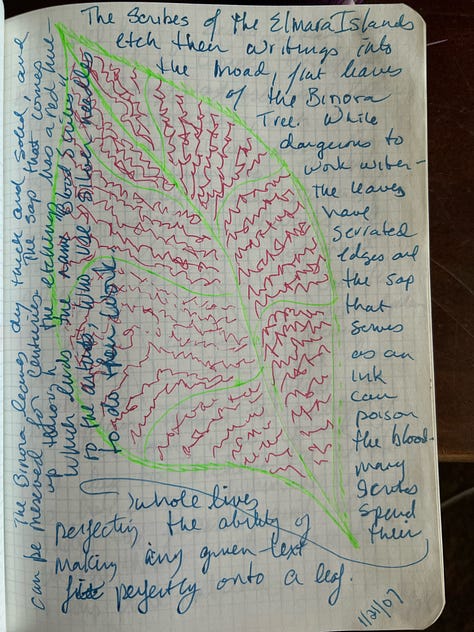 The Scribes of the Elmara Islands
etch their writings into
the broad, flat leaves
of the Binora
Tree. While
dangerous to
work with —
the leaves
have
serrated
edges and
the sap
that
serves
as an
ink
can
poison
the blood.
many
Scribes
spend
their
whole lives
perfecting the ability of
making any given text
fit perfectly onto a leaf.
The Binora leaves dry thick and solid, and
can be preserved for centuries. The sap that comes
up through the etchings has a red hue —
which lends the name "Blood Scribes"
to the artists, who use silver needles
to do their work
1/21/07